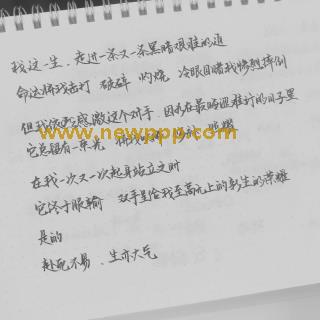 我这一生，走过一条又一条黑暗艰难的道
命运将我击打 破碎 灼烧 冷眼目睹我惨烈摔倒
但我依然感激这个对手，因为在最困难的日子里
它总留有一束光
www.newppp.com
在我一次又一次起身站立之时
它终于服输 双手呈给我至高无上的新生的荣耀
是的
赴死不易、生亦大气